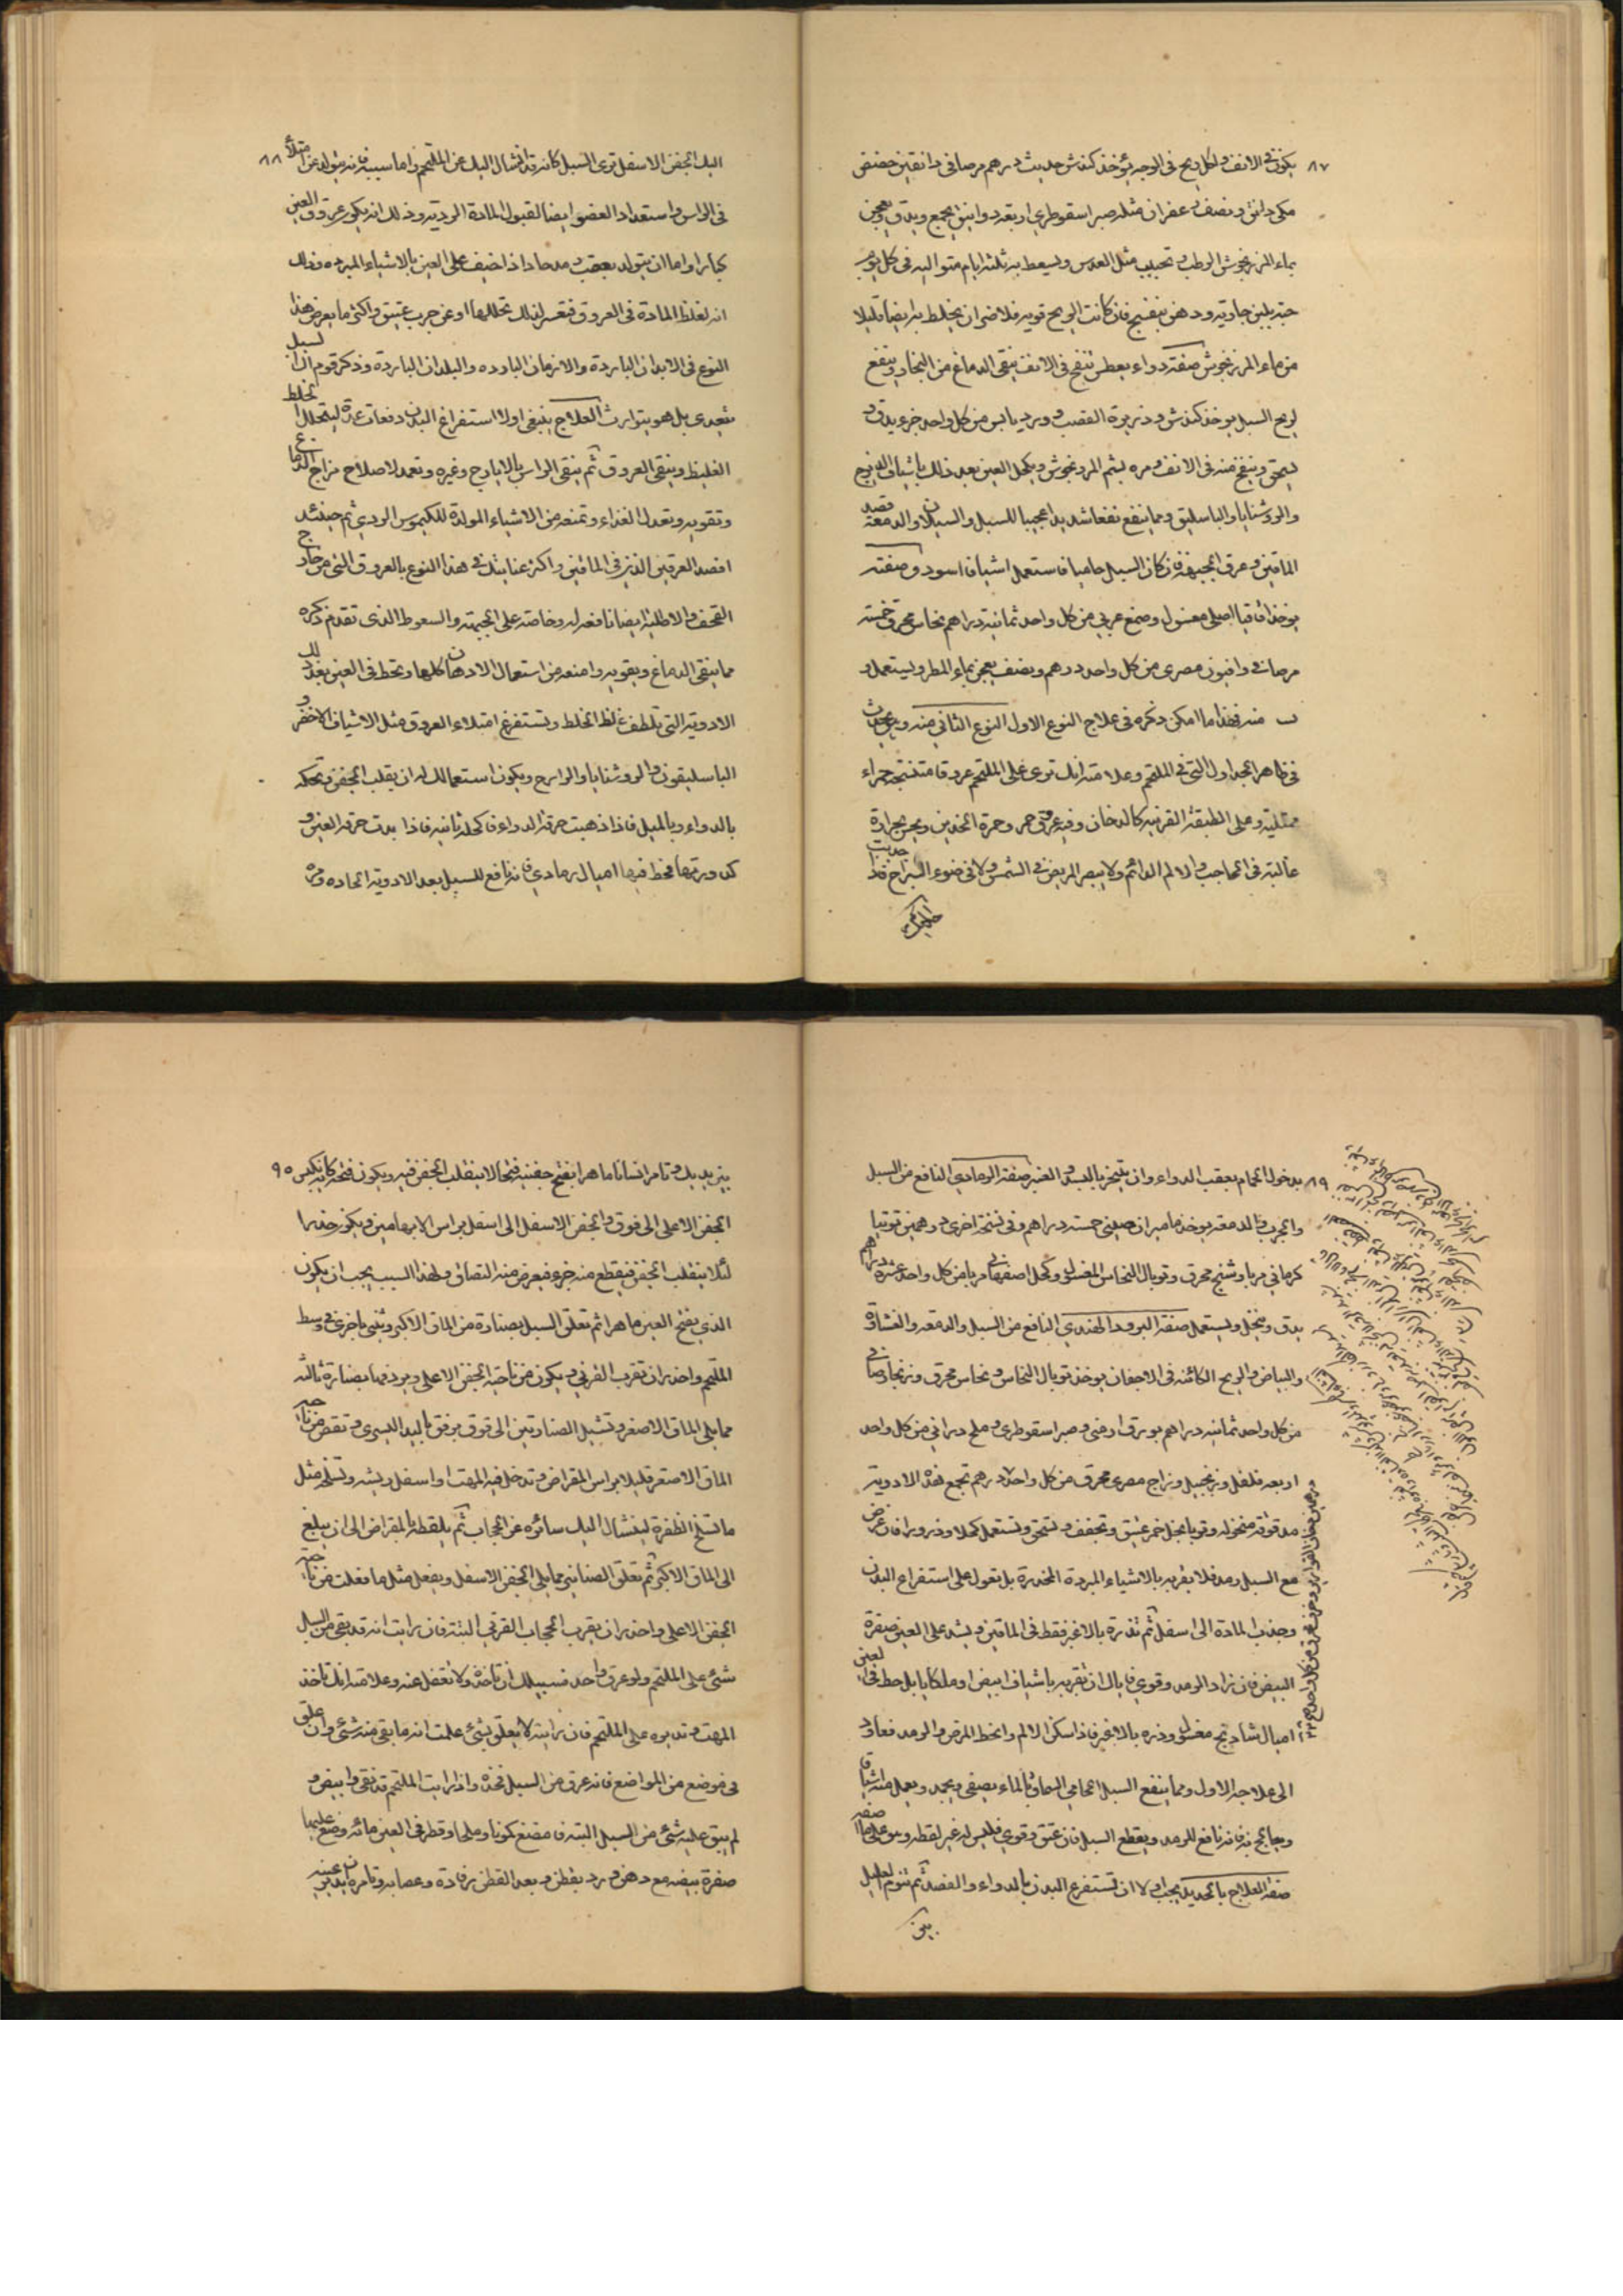 ٨٧ يكون في الانف ولكل ريح في الوجه يؤخذ كندش حديث درهم مر صافي دانقين حضض
مكي دانق ونصف زعفران مثله صبر اسقوطري اربعة دوانيق يجمع ويدق ويعجن
بماء المرزنجوش الرطب ويحبب مثل العدس ويسعط به ثلثة ايام متوالية في كل يوم
حبة بلبن جارية ودهن بنفسج فان كانت الريح قوية فلا ضر ان يخلط به ايضا قليلا
من ماء المرزنجوش صفة دواء يعطس ينفخ في الانف ينقي الدماغ من البخار وينفع
لريح السبل يوخذ كندش وذريرة القصب وورد يابس من كل واحد جزء يدق و
يسحق وينفخ منه في الانف ومره يشم المرزنجوش ويكحل العين بعد ذلك باشياف
والروشنايا والباسليق ومما ينفع نفعا شديدا عجيبا للسبل والسيلان والدمعة فصد
الماقين وعرق الجبهة فان كان السبل حاميا فاستعمل اشياف اسود وصفته
يوخذ اقاقيا اصلي مغسول وصمغ عربي من كل واحد ثمانية دراهم نحاس محرق خمسة
مر صافي وافيون مصري من كل واحد درهم ونصف يعجن بماء المطر ويستعمل و
منه فهذا ما امكن ذكره في علاج النوع الاول النوع الثاني منه ويحدث
في ظاهر الجداول التي في الملتحم وعلامته انك ترى على الملتحم عروقا منتسجة حمراء
ممتلية وعلى الطبقة القرنية كالدخان وفيه عروق حمر وحمرة الخدين ويجد حرارة
غالبة في الحاجب والالم الدائم ولا يبصر المريض في الشمس ولا في ضوء السراج فاذا جذبت
اليك الجفن الاسفل ترى السبل كانه قد انشال اليك عن الملتحم واما سببه فانه يتولد عن امتلأ ٨٨
في الراس واستعداد العضو ايضا لقبول المادة الردية وذلك انه يكون عروق العين
كبارا واما ان يتولد بعقب رمد حاد اذا اضيف على العين بالاشياء المبرده وذلك
انه تغلظ المادة في العروق فيعسر لذلك تحللها او عن جرب عتيق واكثر ما يعرض هذا
النوع في الابدان الباردة والازمان الباردة والبلدان الباردة وذكر قوم ان السبل
يعدي بل هو يتوارث العلاج ينبغي اولا استفراغ البدن دفعات عدة ليتحلل الخلط
الغليظ وينقي العروق ثم ينقي الراس بالايارج وغيره وتعمد لاصلاح مزاج الدماغ
وتقويه وتعدل الغذاء وتمنعه من الاشياء المولدة للكيموس الردي ثم حينئذ
افصد العرقين الذين في الماقين واكثر عنايتك في هذا النوع بالعروق التي من خارج
القحف والاطلية ايضا نافعه له وخاصة على الجبهة والسعوط الذي تقدم ذكره
مما ينقي الدماغ ويقويه وامنعه من استعمال الادهان كلها وتحط في العين بعد ذلك
الادوية التي تلطف غلظ الخلط وتستفرغ امتلاء العروق مثل الاشياف الاخضر و
الباسليقون والروشنايا والدارج ويكون استعمالك له ان يقلب الجفن وتحكه
بالدواء وبالميل فاذا ذهبت حرقة الدواء فاكحله ثانية فاذا بدت حرقة العين و
كدورتها فحط فيها اميال رمادي فانه نافع للسبل بعد الادوية الحادة ومره
٨٩ بدخول الحمام بعقب الدواء وان يتبخر بالسبد والعنبر صفة الرمادي النافع من السبل
والجرب والدمعة يوخذ ماميران صيني خمسة دراهم وفي نسخة اخرى درهمين توتيا
كرماني مربا وشنج محرق وتوبال النحاس المغسول وكحل اصفهاني مربا من كل واحد عشرة دراهم
يدق وينخل ويستعمل صفة البرود الهندي النافع من السبل والدمعة والغشاوة
والبياض والريح الكائنة في الاجفان يوخذ توبال النحاس ونحاس محرق وزنجار صافي
من كل واحد ثمانية دراهم بورق ارمني وصبر اسقوطري وملح دراني من كل واحد
اربعه فلفل وزنجبيل وزاج مصري محرق من كل واحد درهم تجمع هذه الادوية
مدقوقه منخوله وتربا بخل خمر عتيق وتجفف وتسحق وتستعمل كحلا وذرورا فان عرض
مع السبل رمد فلا يقربه بالاشياء المبردة المخدرة بل تعول على استفراغ البدن
وجذب المادة الى اسفل ثم تذره بالاغبر فقط في الماقين ويشد على العين صفرة
البيض فان زاد الرمد وقوي فاياك ان تقربه باشياف ابيض او ملكايا بل حط في العين
اميال شاديج مغسول وذره بالاغبر فاذا سكن الالم وانحط المرض والرمد فعاود
الى علاجه الاول ومما ينفع السبل الحامي السماق بالماء يصفى ويجمد ويعمل منه اشياف
ويعالج به فانه نافع للرمد ويقطع السبل فان عتق وقوي فليس له غير لقطه وهو على ما اصفه
صفة العلاج بالحديد يجب اولا ان تستفرغ البدن بالدواء والفصد ثم تنوم العليل
بين
بين يديك وتامر انسانا ماهرا يفتح جفنيه فتحا لا ينقلب الجفن فيه ويكون فتحه كانه يكبس ٩٠
الجفن الاعلى الى فوق والجفن الاسفل الى اسفل براس الابهامين ويكون حذرا
لئلا ينقلب الجفن فيقطع منه جزء فيعرض منه التصاق ولهذا السبب يجب ان يكون
الذي يفتح العين ماهرا ثم تعلق السبل بصنارة من الماق الاكبر وثني باخرى في وسط
الملتحم واحذر ان تقرب القرني ويكون من ناحية الجفن الاعلى ويردفها بصنارة ثالثه
مما يلي الماق الاصغر وتشيل الصنارتين الى فوق برفق باليد اليسرى وتقص من ناحية
الماق الاصغر قليلا براس المقراض وتدخل فيه المهت او اسفل ريشه وتسلخه مثل
ما تسلخ الظفرة لينشال اليك سائره عن الحجاب ثم يلقطه بالمقراض الى ان يبلغ
الى الماق الاكبر ثم تعلق الصنانير مما يلي الجفن الاسفل ويفعل مثل ما فعلت من ناحية
الجفن الاعلى واحذر ان يقرب الحجاب القرني البتة فان رايت انه قد بقي من السبل
شئ على الملتحم ولو عرق واحد فسبيلك ان تاخذه ولا تغفل عنه وعلامته انك تاخذ
المهت وتديره على الملتحم فان رايته لا يعلق بشئ علمت انه ما بقي منه شئ وان علق
في موضع من المواضع فانه عرق من السبل فخذه واذا رايت الملتحم قد نقي وابيض و
لم يبق عليه شئ من السبل البتة فامضغ كمونا وملحا وقطر في العين مائه وضع عليها
صفرة بيضه مع دهن ورد بقطن وبعد القطن رفادة وعصابه وتامره ان يدير عينيه